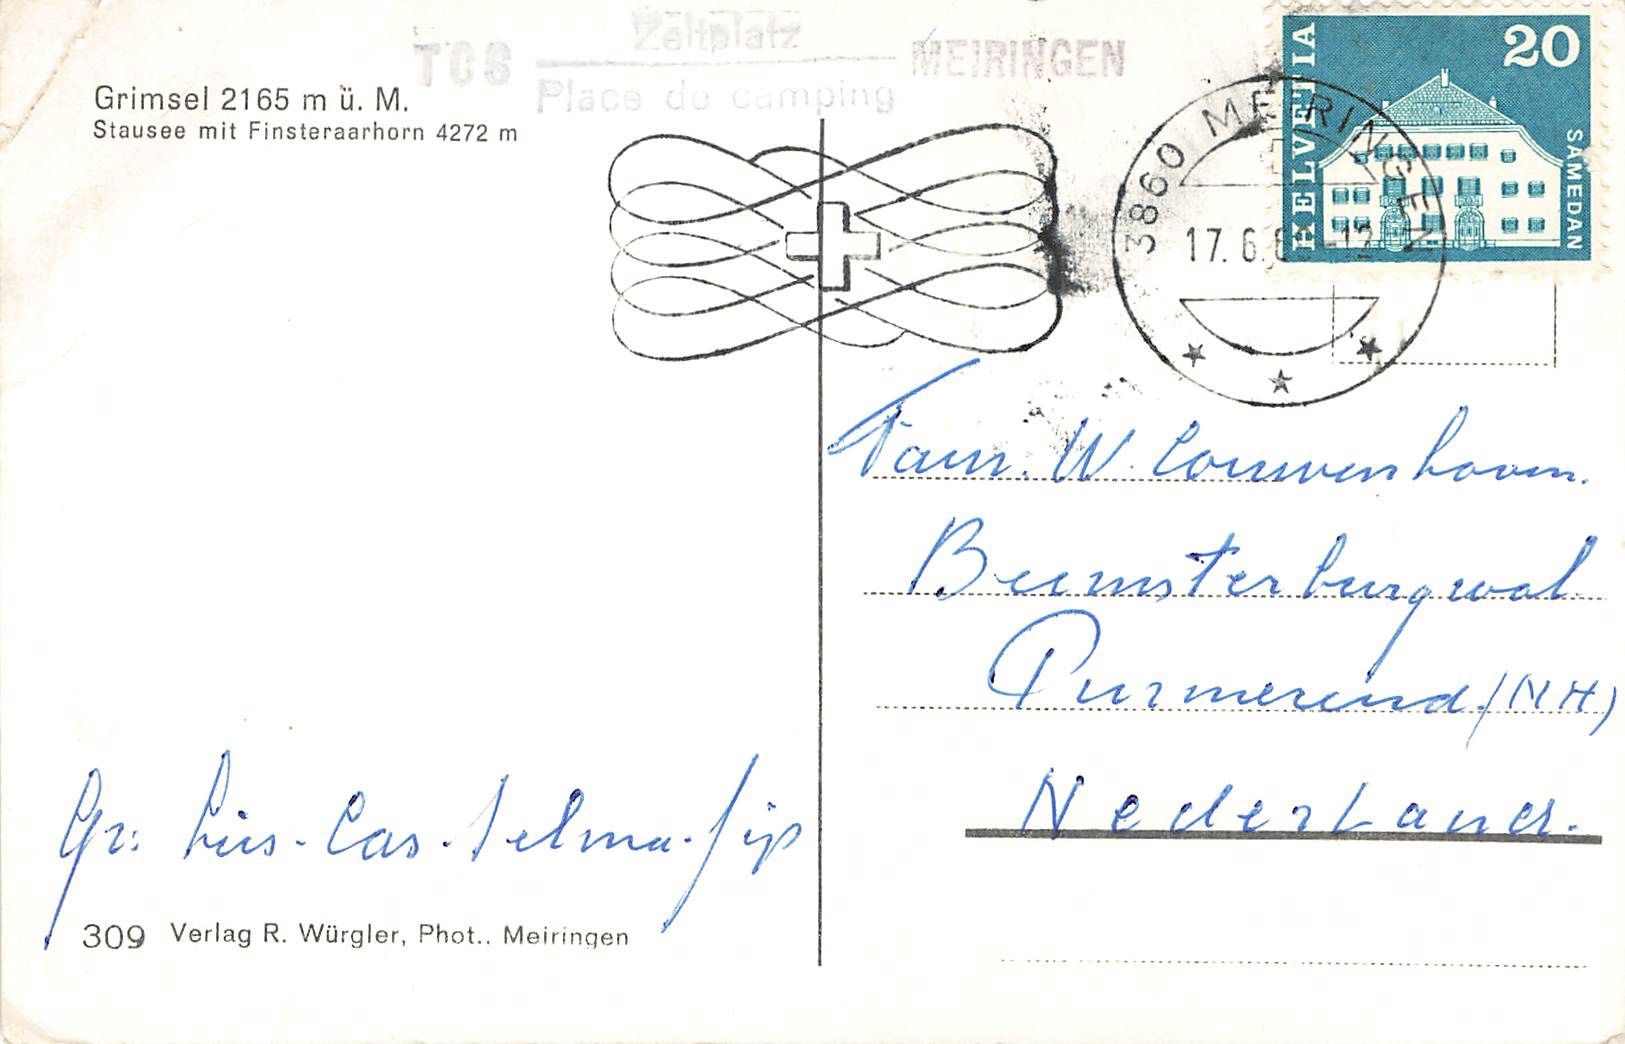 Grimsel 2165 m ü. M.
Stausee mit Finsteraarhorn 4272 m
TCS Zeltplatz MEIRINGEN
Place de camping
3860 MEIRINGEN
17. 6. 6 -12
HELVETIA
20
SAMEDAN
Fam. W. Couwenhoven.
Beemsterburgwal.
Purmerend (NH)
Nederland.
Gr: Luis - Cas - Selma - Jip
309 Verlag R. Würgler, Phot.. Meiringen